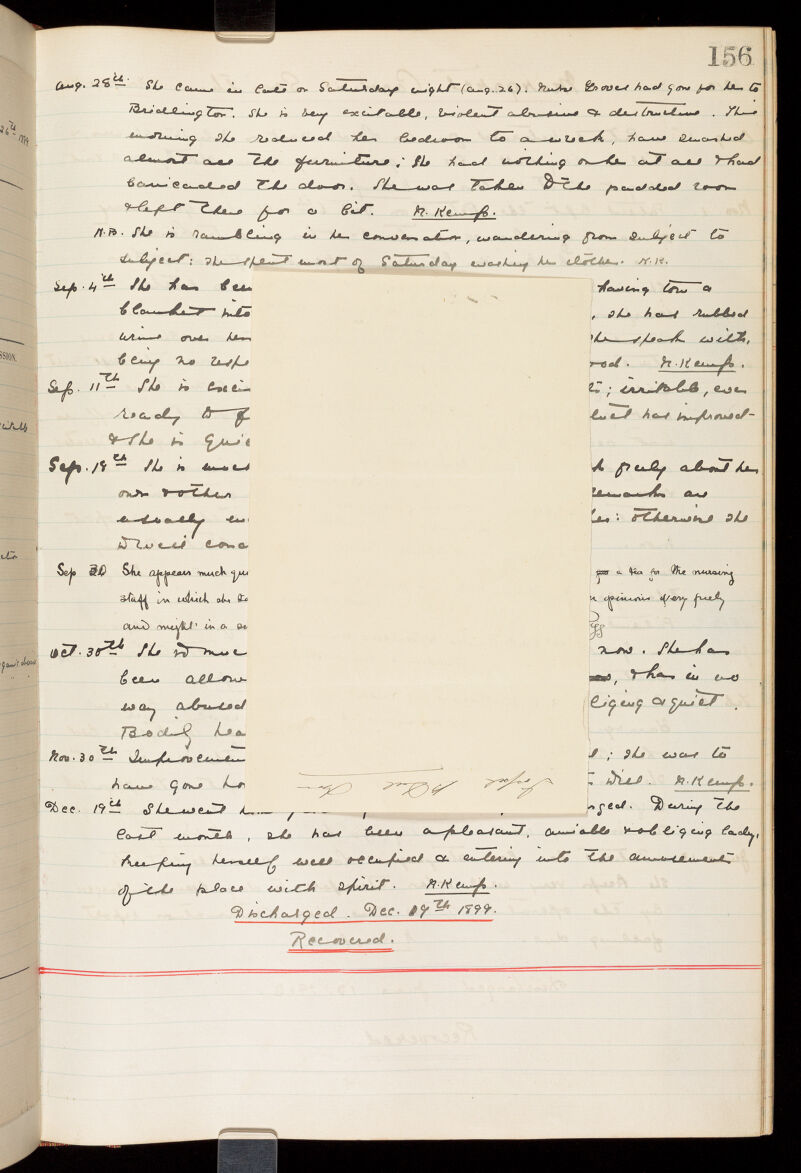 156
Aug. 28th She came in late on Saturday night (Aug. 26). Nurse Groves had gone for her to
Bridlington. She is very excitable, violent abusive & destructive. This
morning she reduced her bedroom to a wreck, have smashed
almost all the furniture; she had nothing on her at all & had
barricaded the door. She was taken to the padded room
& left there for a bit. N. Kemp.
N.B. She is rambling in her conversation, wandering from subject to
subject: she spent most of Saturday washing her clothes. N.K.
Sep. 4th She has been having torn a
blanket into , she has rubbed
urine over her she speaks with,
being no respe N. Kemp.
Sep. 11th She is exci ; irritable, ever
ready to f has improved
& she is quie
Sep. 19th She is much freely about her
own & other remarks are
usually : otherwise she
is well cond
Sep 30 She appears much qui a tea for the nursing
staff in which she opinions very freely
and might in a
Oct. 30th She is muc now. She has
been allow , & has in no
way abused obliging & quiet.
Bodily hea
Nov. 30th Improvement ; she was to
have gone ho will. N. Kemp.
Dec. 19th She went During the
last month, she has been a pleasant, amiable & obliging lady,
keeping herself well occupied & entering into the amusements
of the place with spirit. N. Kemp.
Discharged. Dec. 19th 1899.
Recovered.